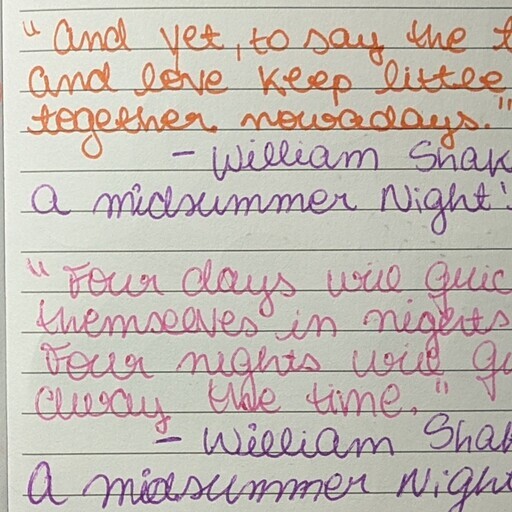 "And yet, to say the t
and love keep little
together nowadays."
- William Shak
A midsummer Night'
"Four days will quic
themselves in nights
Four nights will qu
away the time."
- William Shak
A midsummer Night